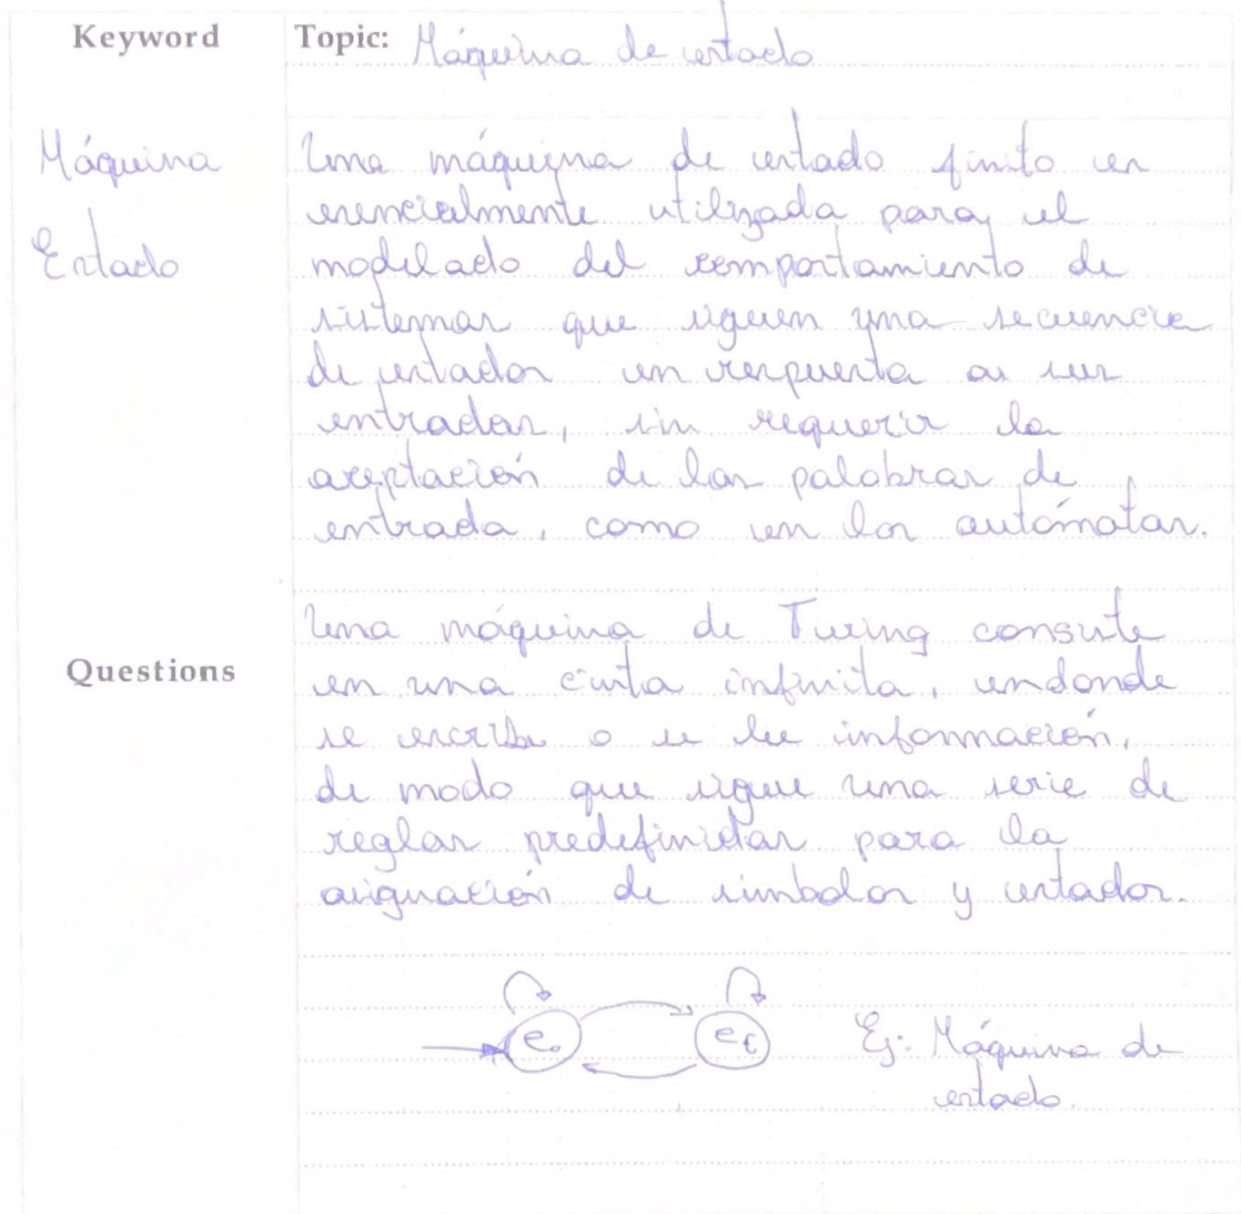 Keyword
Topic: Máquina de estado
Máquina
Estado
Una máquina de estado finito es
esencialmente utilizada para el
modelado del comportamiento de
sistemas que siguen una secuencia
de estados en respuesta a sus
entradas, sin requerir la
aceptación de las palabras de
entrada, como en los autómatas.
Questions
Una máquina de Turing consiste
en una cinta infinita, endonde
se escribe o se lee información,
de modo que sigue una serie de
reglas predefinidas para la
asignación de simbolos y estados.
e₀
Ej: Máquina de
estado.